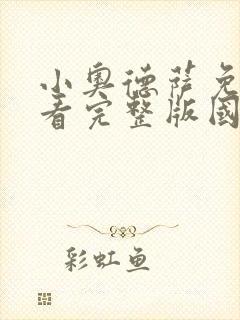 小奥德萨免
看完整版国
彩虹鱼